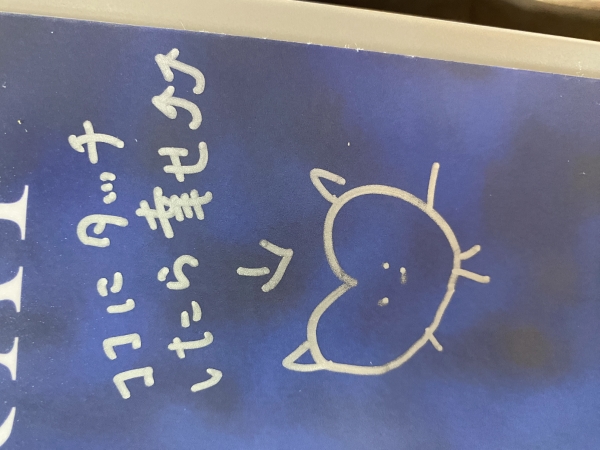 ココにタッチ
したら幸せ⤴⤴
↓